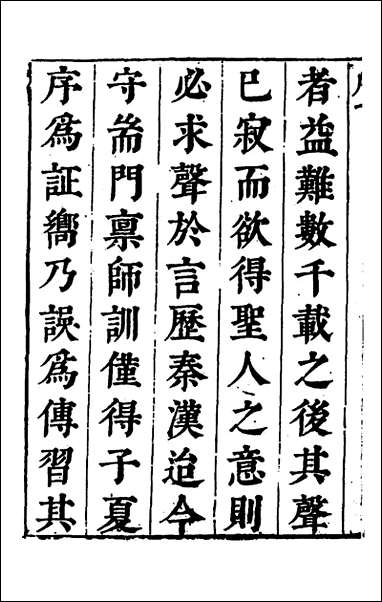 者益難數千載之後其聲
已寂而欲得聖人之意則
必求聲於言歷秦漢迨今
守耑門禀師訓僅得子夏
序為証嚮乃誤為傳習其